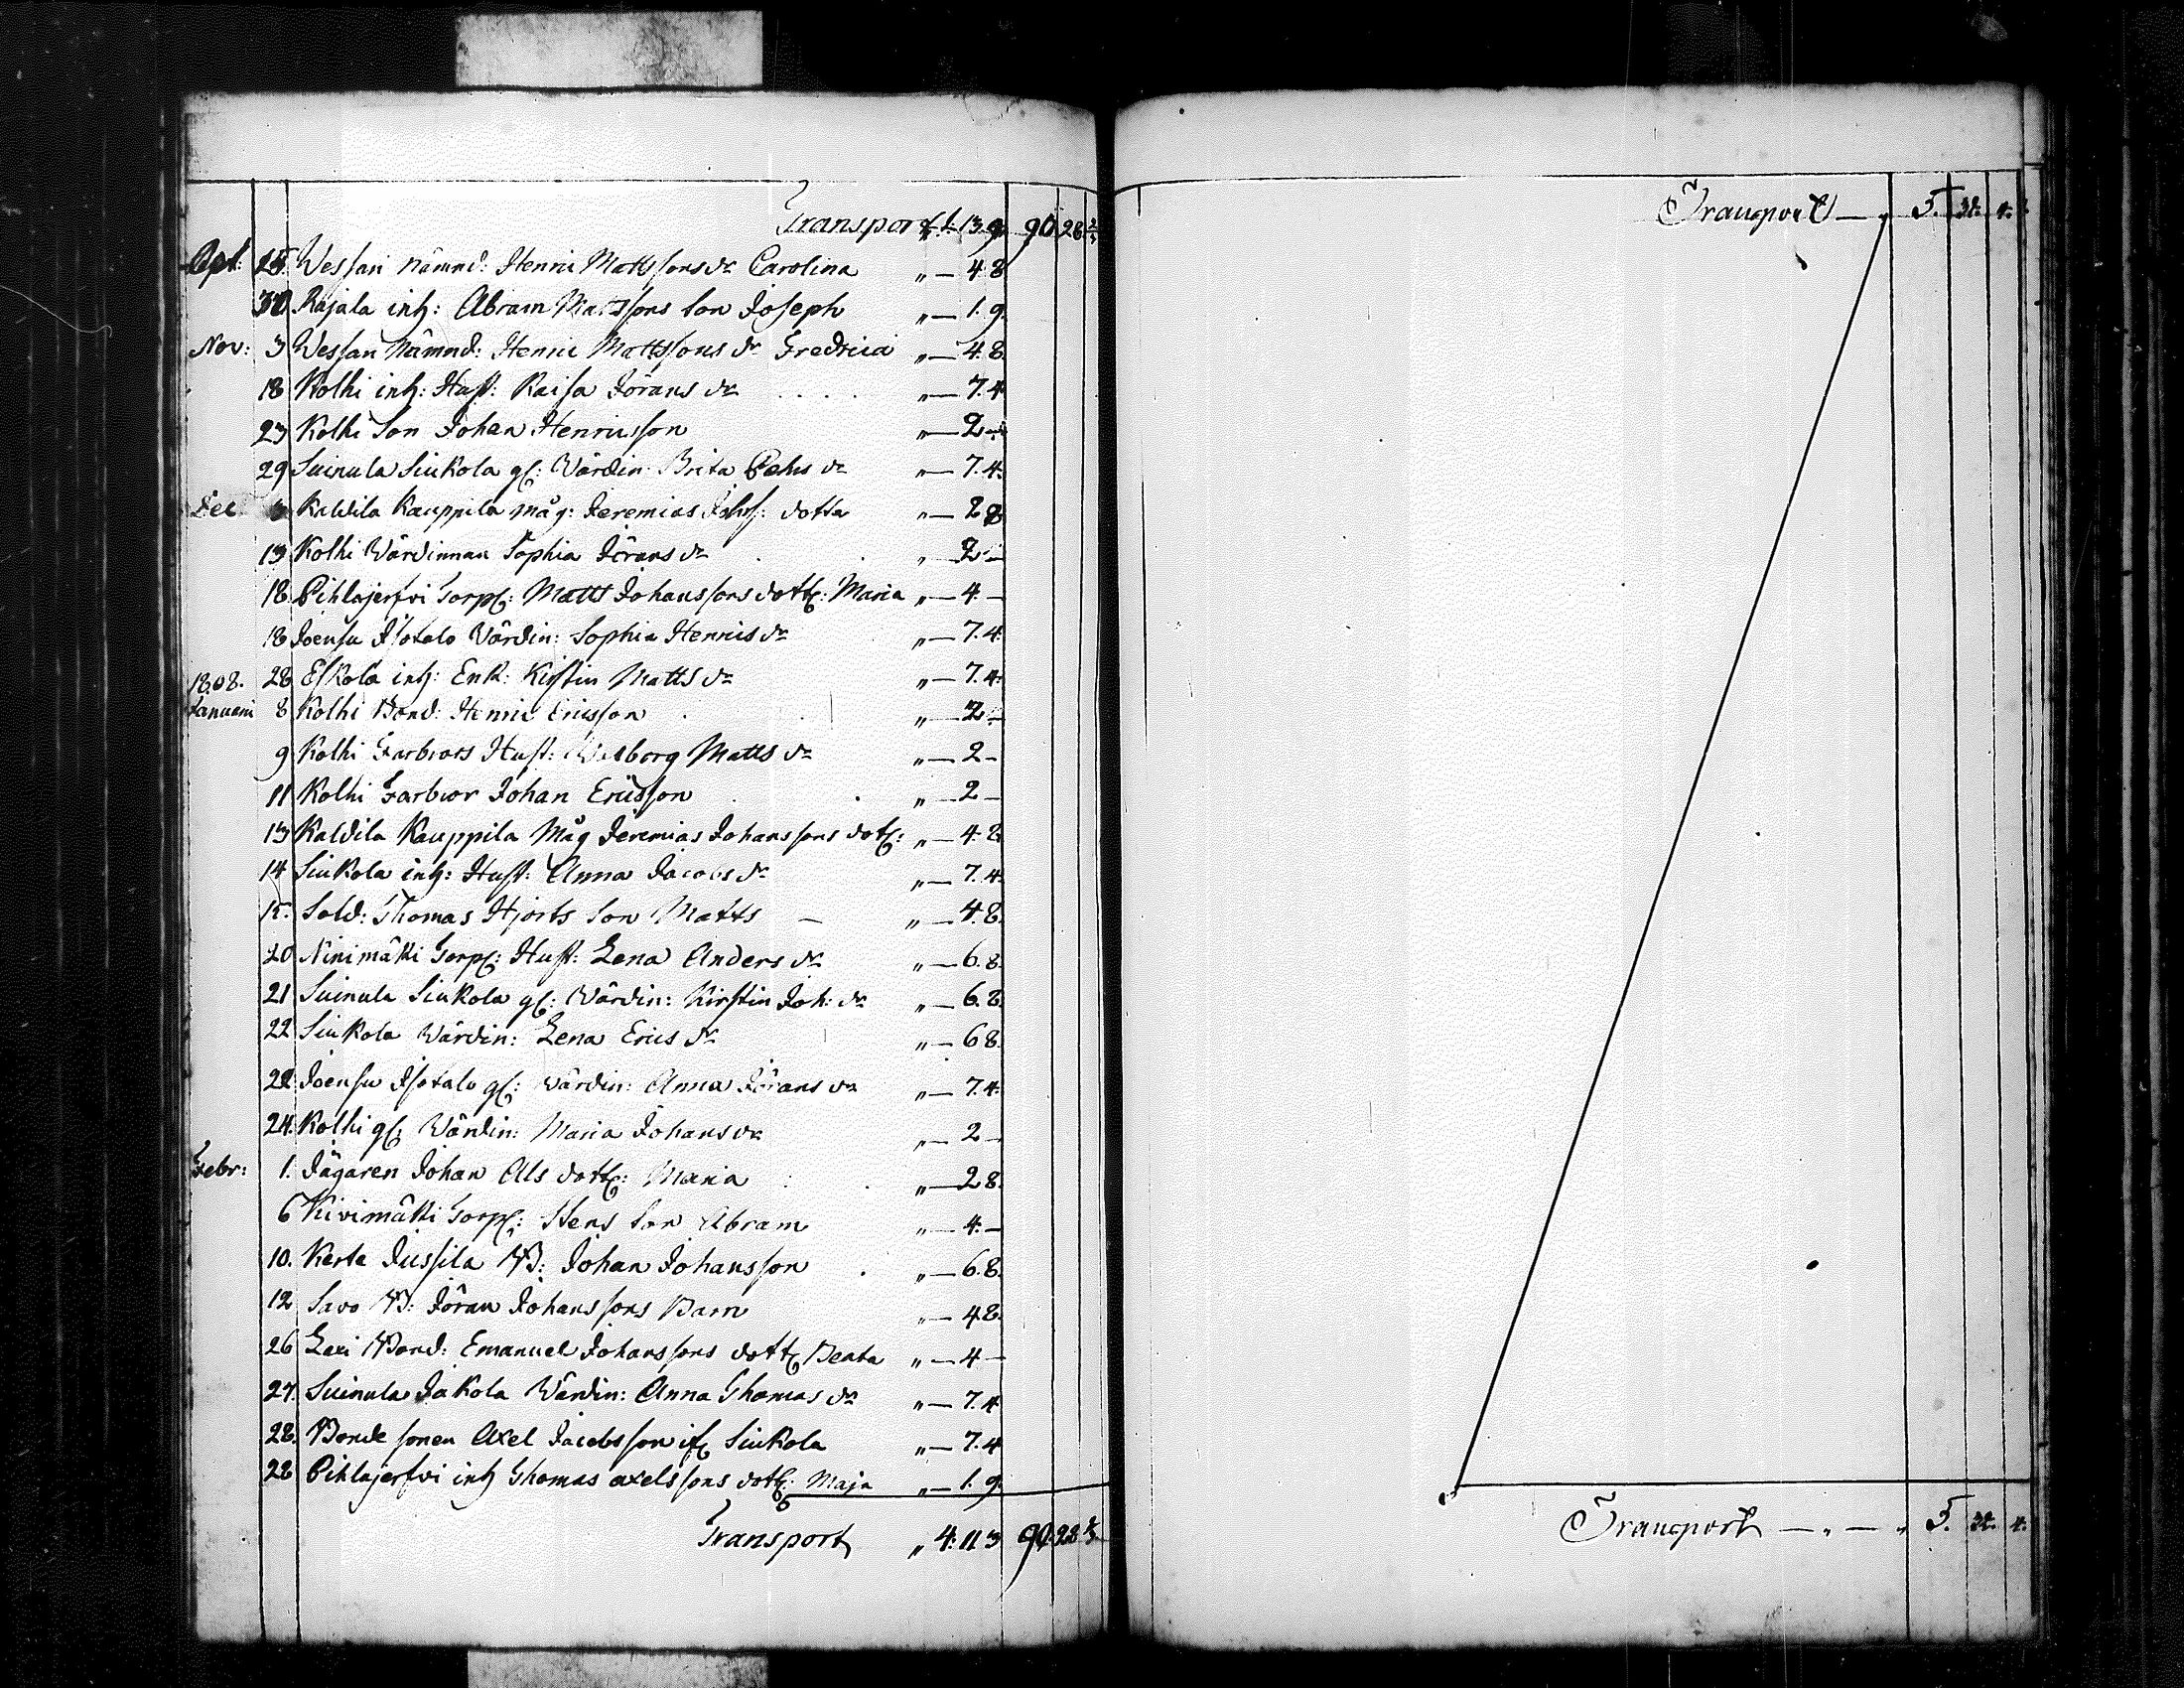 Transport 1. 13. 9. 90 28 2/3
25. Wessari Nämnd: Henric Mattssons dr Carolina „ — 4. 8
30 Rajala inh: Abram Mattssons Son Joseph „ — 1. 9.
Nov: 3 Wessari Nämnd: Henric Mattssons dr Fredrica „ — 4. 8.
18 Kolhi inh: Hust: Kaisa Jörans dr . . . . „ — 7. 4
23 Kolhi Son Johan Henricsson „ — 2 —
29 Suinula Siukola gl: Wärdin: Brita Pehrs dr „ — 7. 4.
Dec. Kaldila Kauppila måg: Jeremias Johs: dotter „ — 2 8
13 Kolhi Wärdinnan Sophia Jörans dr „ — 2 —
18 Pihlajerfvi Torp: Matts Johanssons dott: Maria „ — 4. —
18 Joensu Isotalo Wärdin: Sophia Henrics dr „ — 7. 4.
1808. 28 Eskola inh: Enk: Kirstin Matts dr „ — 7. 4.
Januarii 8 Kolhi Bond: Henric Ericsson „ — 2. —
9 Kolhi Farbrors Hust: Walborg Matts dr „ — 2 —
11 Kolhi Farbror Johan Ericsson „ — 2 —
13 Kaldila Kauppila Måg Jeremias Johanssons dott: „ — 4. 8
14 Siukola inh: Hust: Anna Jacobs dr „ — 7. 4.
15. Sold: Thomas Hjorts Son Matts — „ — 4. 8.
20 Ninimäki Torp: Hust: Lena Anders dr „ — 6. 8.
21 Suinula Siukola gl: Wärdin: Kirstin Joh: dr „ — 6. 8.
22 Siukola Wärdin: Lena Erics dr „ — 6 8.
22. Joensu Isotalo gl: Wärdin: Anna Jörans dr „ — 7. 4.
24. Kolhi gl: Wärdin: Maria Johans dr „ — 2 —
Febr: 1. Jägaren Johan Als dott: Maria „ — 2 8.
6 Kivimäki Torp: Hens Son Abram „ — 4. —
10. Kerte Jussila B: Johan Johansson „ — 6. 8.
12 Savo B: Jöran Johanssons Barn „ — 4 8.
26 Lari Bond: Emanuel Johanssons dott Beata „ — 4 —
27. Suinula Jakola Wärdin: Anna Thomas dr „ — 7. 4
28. Bonde sonen Axel Jacobsson ifr Siukola „ — 7. 4
28 Pihlajerfvi inh Thomas axelssons dott: Maja „ — 1. 9.
Transport „ 4: 11 3 90. 28 2/3
Transport — „ 5. 32. 4.
Transport — „ — „ 5. 32. 4.